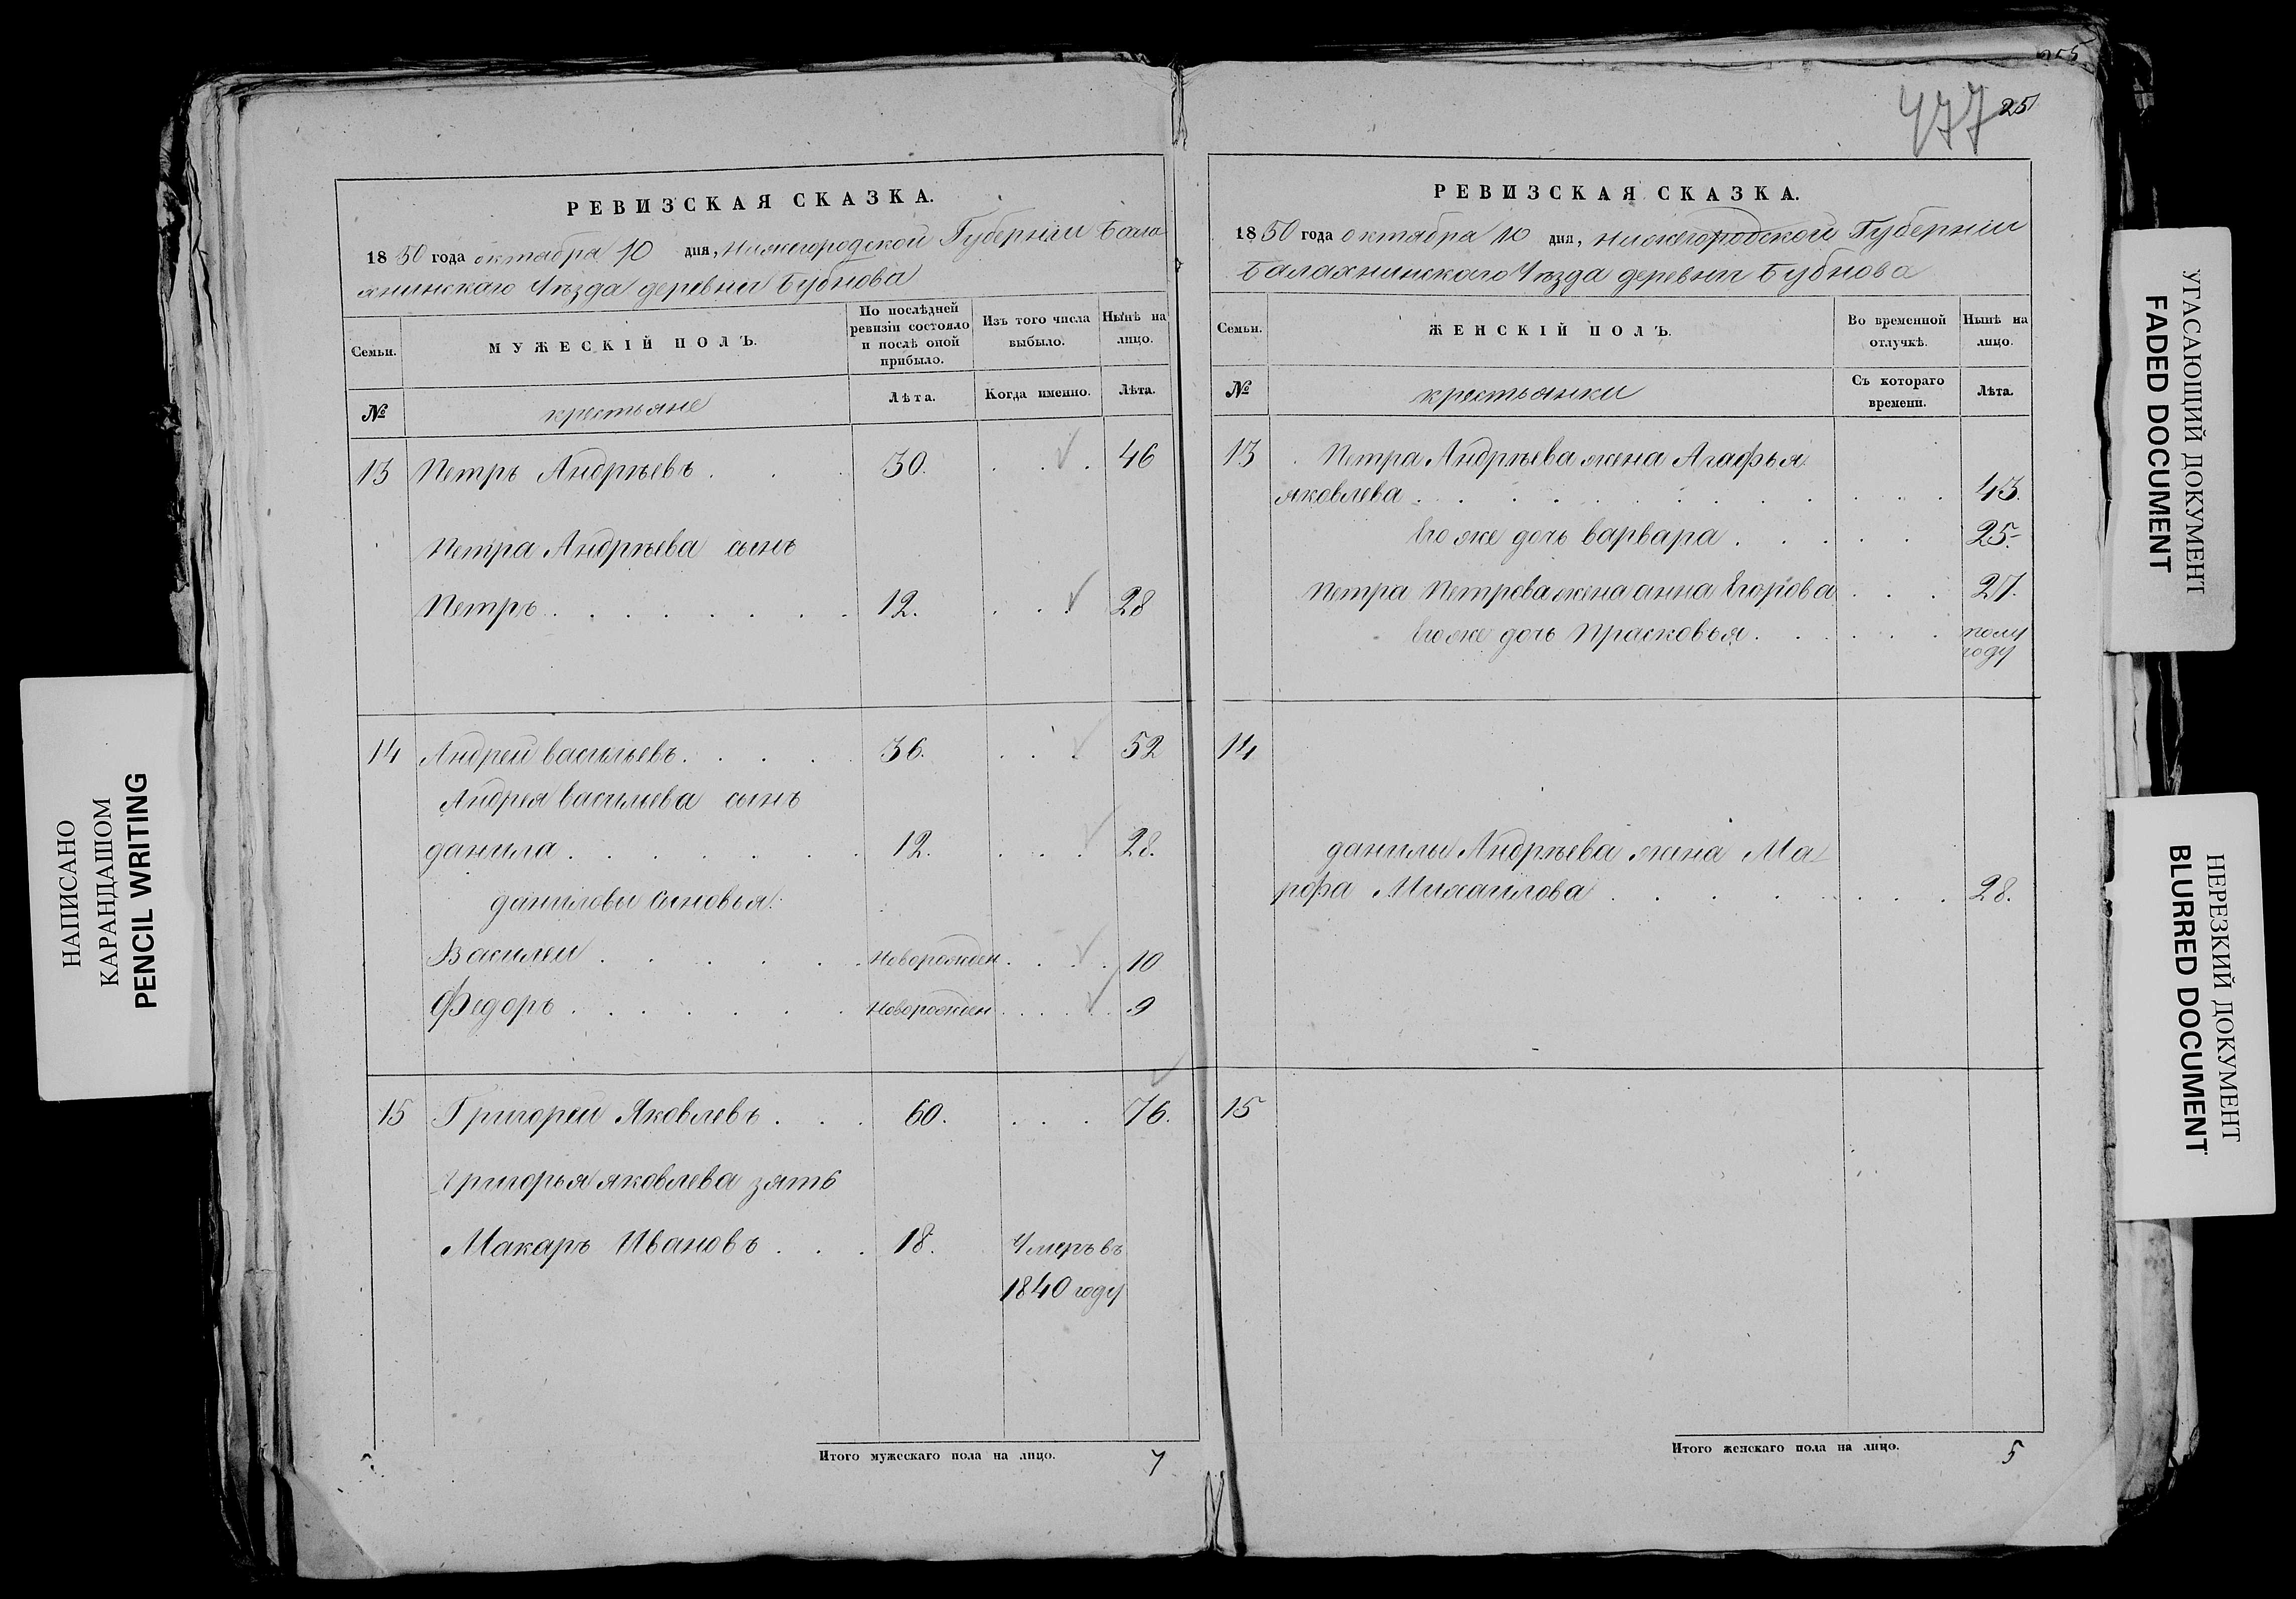 477 25
РЕВИЗСКАЯ СКАЗКА.
1850 года октября 10 дня, Нижегородской Губернии Бала
хнинскаго Уѣзда деревни Бубнова
Семьи.
МУЖЕСКІЙ ПОЛЪ.
По послѣдней
ревизіи состояло
и послѣ оной
прибыло.
Изъ того числа
выбыло.
Нынѣ на
лицо.
№
крестьяне
Лѣта.
Когда именно.
Лѣта.
13 Петръ Андрѣевъ . . . 30. . . . 46
Петра Андрѣева сынъ
Петръ . . . . . . . 12. . . . 28
14 Андрей васильевъ . . . . 36. . . . 52
Андрея васильева сынъ
данила . . . . . . 12. . . . 28.
даниловы сыновья:
Василеи . . . . . новорожден . . . . 10
Федоръ . . . . . . новорожден . . . . 9
15 Григореи Яковлевъ . . . 60. . . . 76.
Григорья яковлева зять
Макаръ Ивановъ . . . 18. Умеръ въ
1840 году
Итого мужескаго пола на лицо. 7
РЕВИЗСКАЯ СКАЗКА.
1850 года октября 10 дня, нижегородской Губернии
Балахнинскаго Уѣзда деревни Бубнова
Семьи.
ЖЕНСКІЙ ПОЛЪ.
Во временной
отлучкѣ.
Нынѣ на
лицо.
№
крестьянки
Съ котораго
времени.
Лѣта.
13 Петра Андрѣева жена Агафья
яковлева . . . . . . . . . . 43.
Его же дочь варвара . . . . . 25.
Петра Петрова жена анна Егорова . . . 27.
Его же дочь Прасковья . . . . . полу
году
14
данилы Андрѣева жена Ма
рфа Михаилова . . . . . . . . 28.
15
Итого женскаго пола на лицо. 5
НАПИСАНО
КАРАНДАШОМ
PENCIL WRITING
УГАСАЮЩИЙ ДОКУМЕНТ
FADED DOCUMENT
НЕРЕЗКИЙ ДОКУМЕНТ
BLURRED DOCUMENT